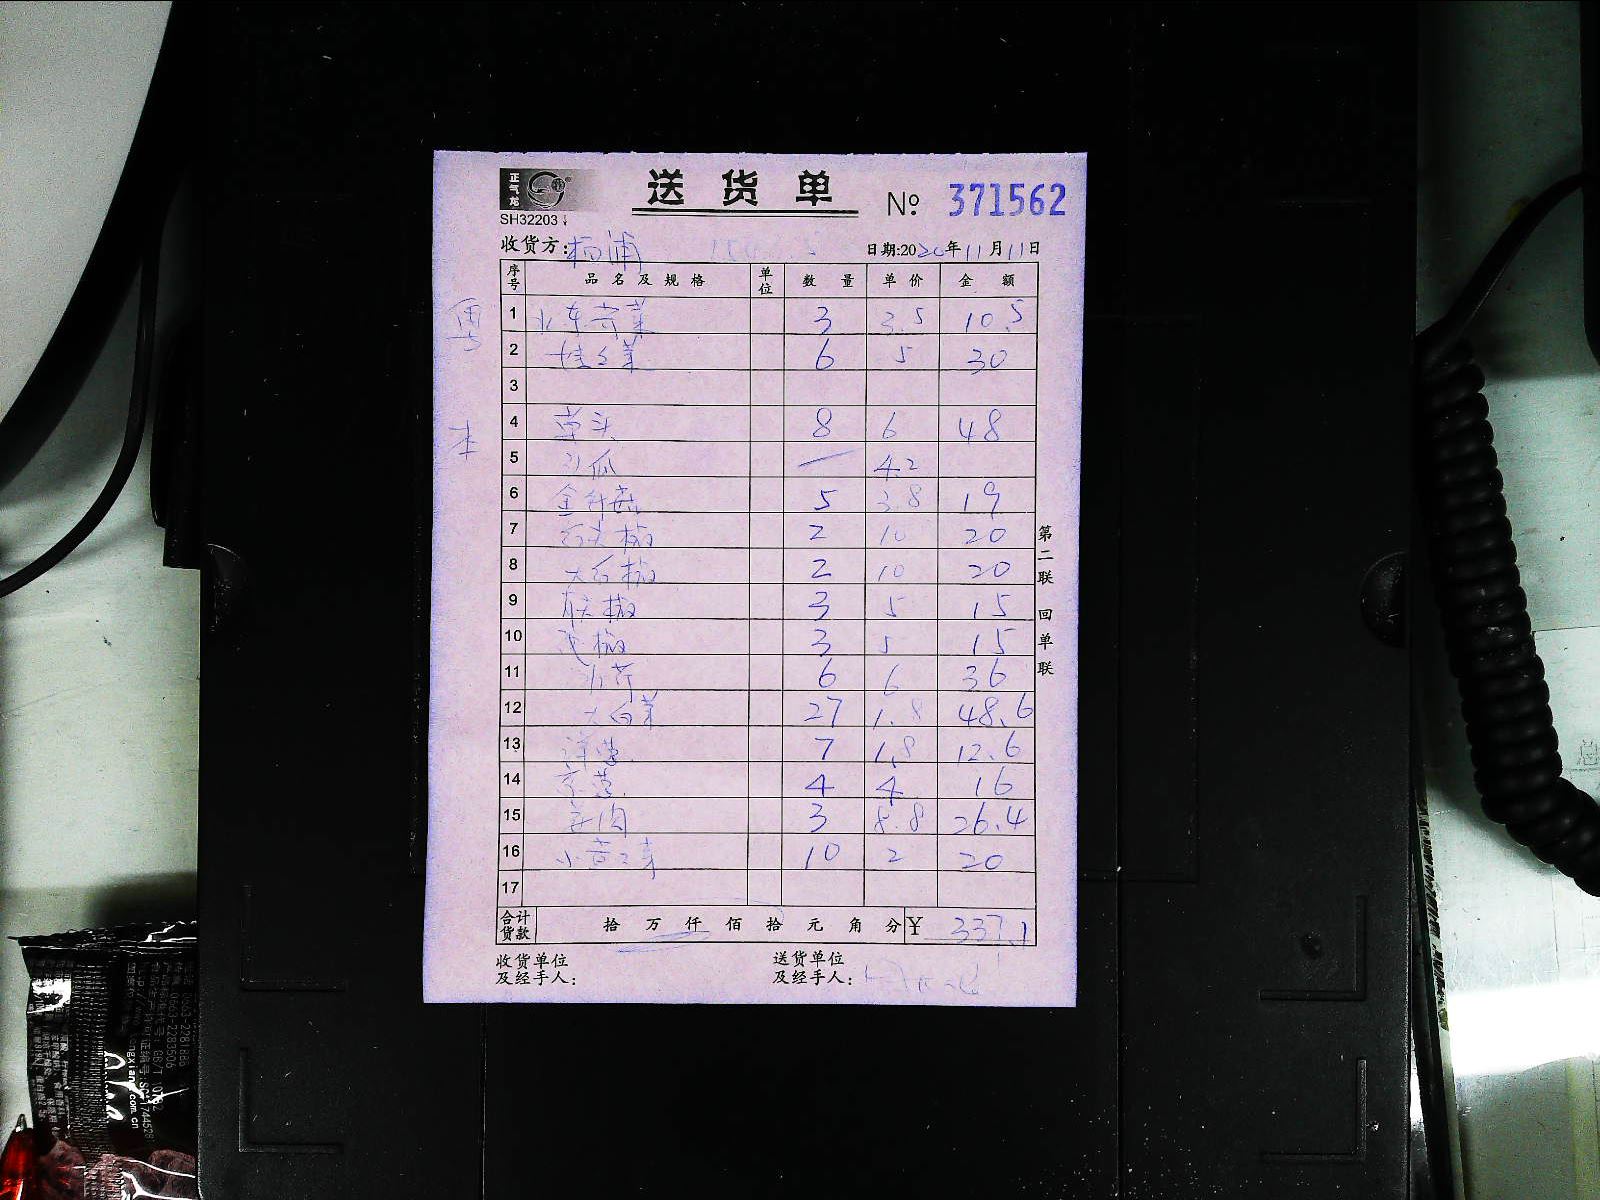 正气龙
送货单 № 371562
SH32203
收货方: 杨浦 日期:2020年11月11日
序号 品名及规格 单位 数量 单价 金额
1 水东芥菜 3 3.5 10.5
2 娃娃菜 6 5 30
3
4 草头 8 6 48
5 4.2
6 金针菇 5 3.8 19
7 2 10 20
8 2 10 20
9 3 5 15
10 3 5 15
11 水芹 6 6 36
12 大白菜 27 1.8 48.6
13 洋葱 7 1.8 12.6
14 京葱 4 4 16
15 3 8.8 26.4
16 10 2 20
17
合计货款 拾 万 仟 佰 拾 元 角 分 ¥ 337.1
收货单位 送货单位
及经手人: 及经手人:
第二联 回单联